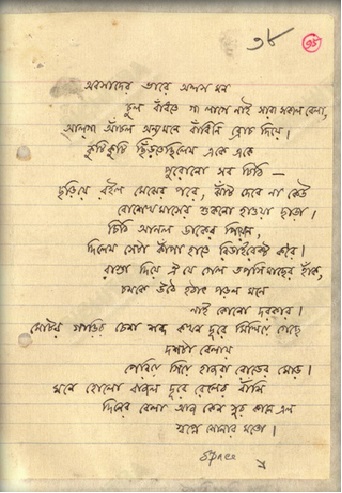 ৩৮ ৩৮
অবসাদের ভারে অলস মন
চুল বাঁধতে গা লাগে নাই সারা সকাল বেলা,
আলগা আঁচল অন্যমনে বাঁধিনি ব্রোচ দিয়ে।
কুটিকুটি ছিঁড়তেছিলেম একে একে
পুরোনো সব চিঠি —
ছড়িয়ে রইল মেঝের পরে, ঝাঁট দেবে না কেউ
বোশেখমাসের শুকনো হাওয়া ছাড়া।
চিঠি আনল ডাকের পিয়ন,
দিলেম সেটা কাঁপা হাতে রিডাইরেক্ট করে।
রাস্তা দিয়ে ঐ যে গেল তপসিমাছের হাঁক,
চমকে উঠে হঠাৎ পড়ল মনে
নাই কোনো দরকার।
মোটর গাড়ির চেনা শব্দ কখন দূরে মিলিয়ে গেছে
দশটা বেলায়
পেরিয়ে গিয়ে হাজরা রোডের মোড়।
মনে হোলো দূরে রেলের বাঁশি
দিনের বেলা কেন সুর কানে এল
স্বপ্নে শোনার মতো।
Space